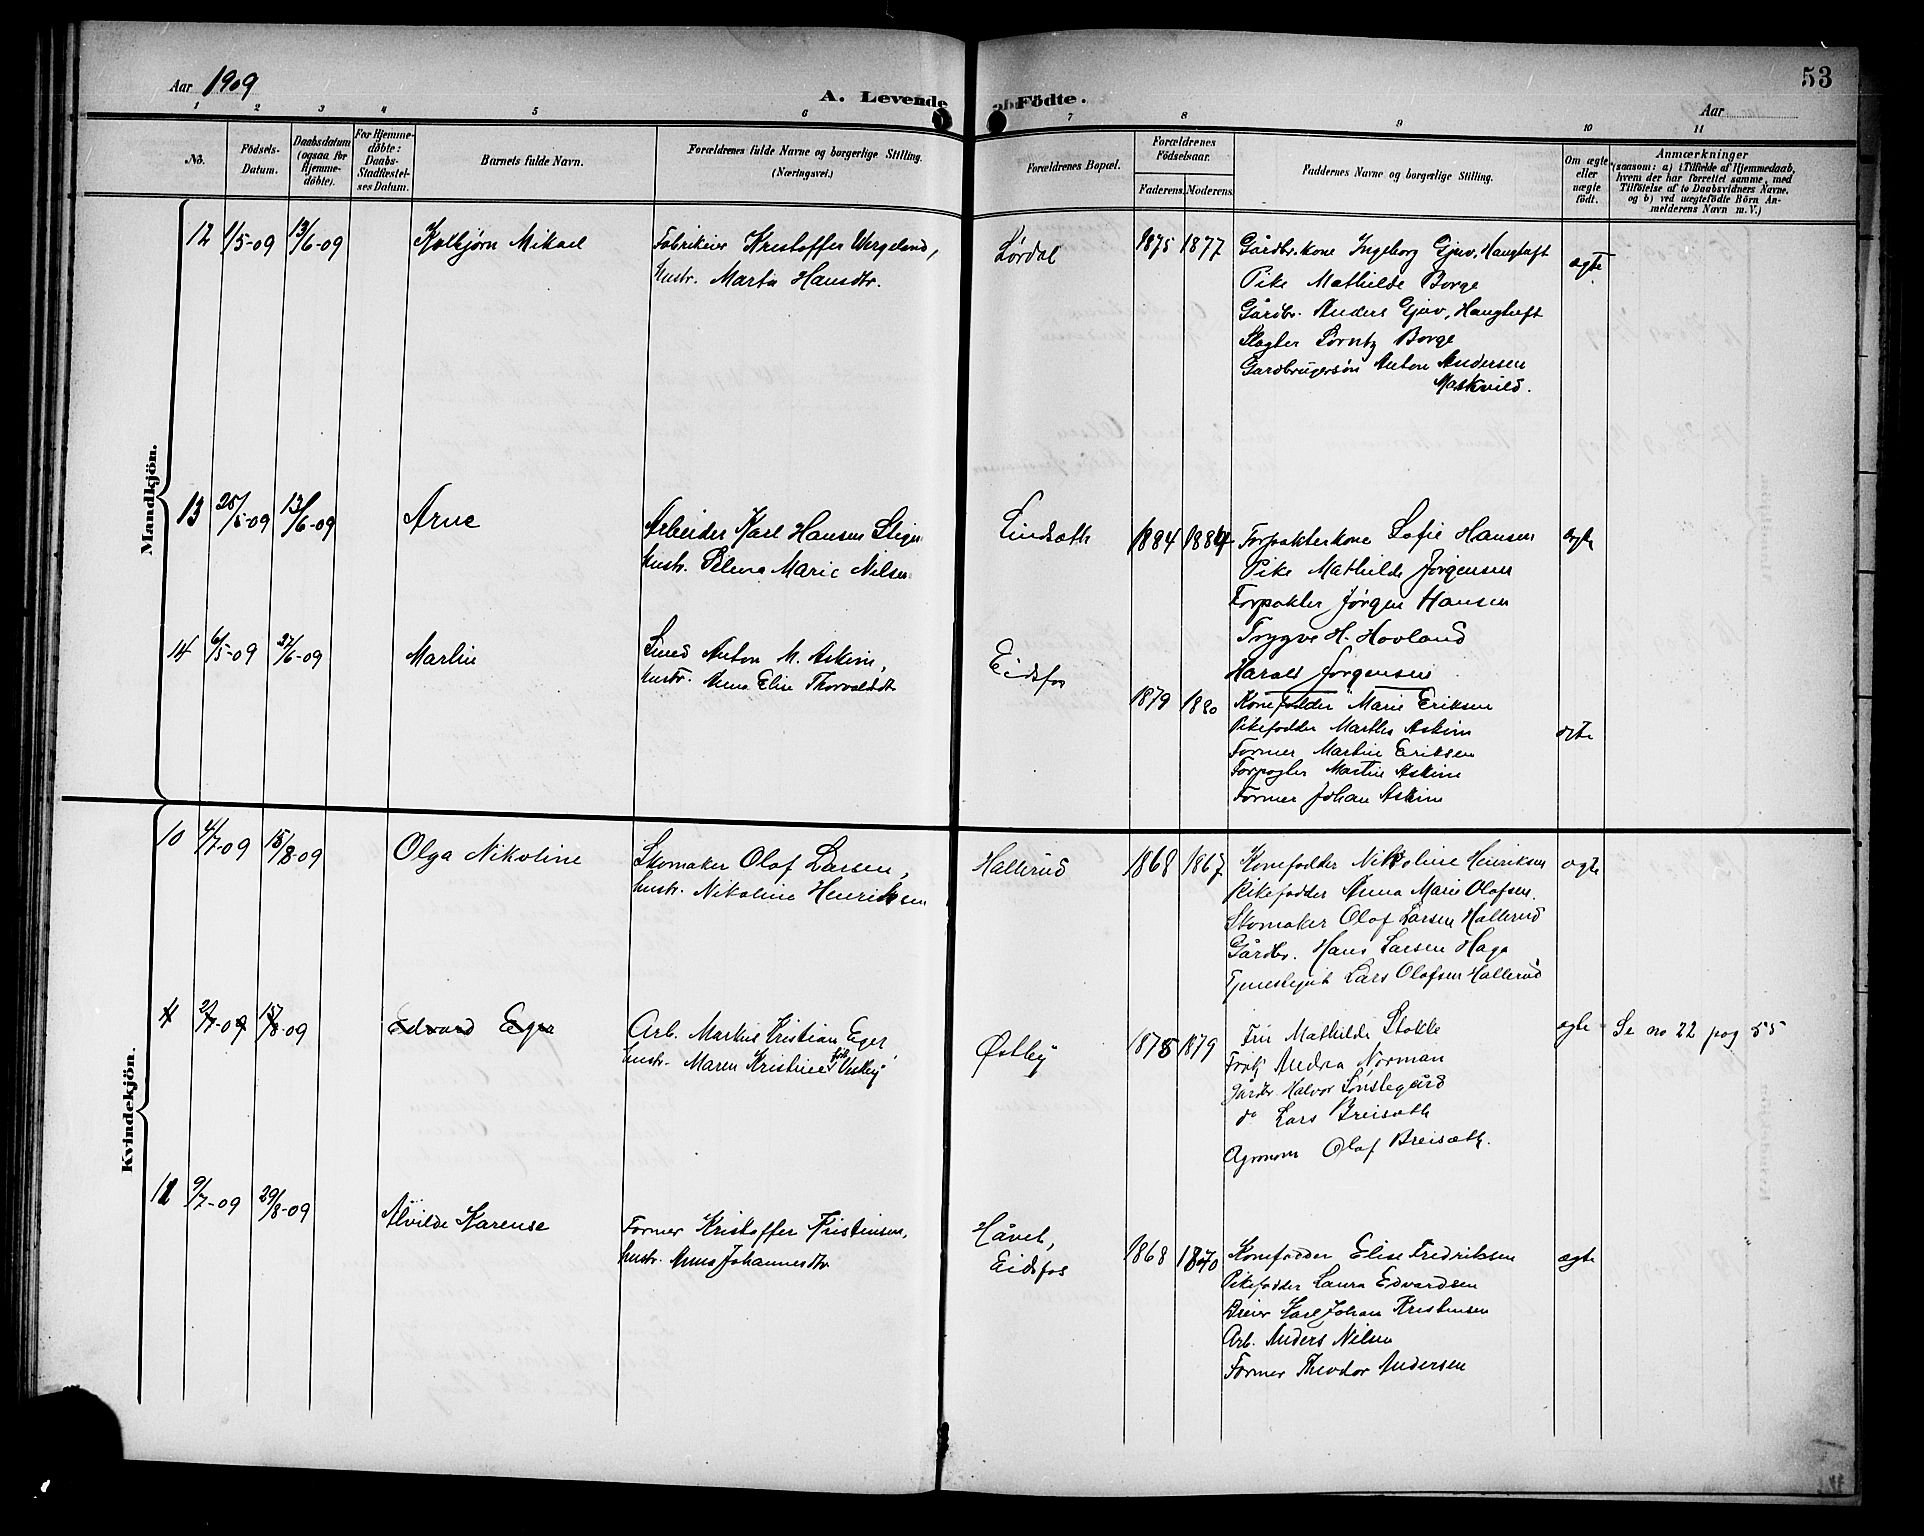 Aar 1909
A. Levende
Födte.
Aar
53
1 2 3 4 5 6 7 8 9 10 11
No.
Födsels-Datum.
Daabsdatum (ogsaa for Hjemme-döbte).
For Hjemme-döbte: Daabs-Stadfæstel-ses Datum.
Barnets fulde Navn.
Forældrenes fulde Navne og borgerlige Stilling. (Næringsvei.)
Forældrenes Bopæl.
Forældrenes Födselsaar.
Faderens. Moderens.
Faddernes Navne og borgerlige Stilling.
Om ægte eller uægte födt.
Anmærkninger
(saasom: a) i Tilfælde af Hjemmedaab,
hvem der har forrettet samme, med
Tilföielse af to Daabsvidners Navne,
og b) ved uægtefödte Börn An-
melderens Navn m. V.)
Mandkjön.
12 1/5-09 13/6-09 Kolbjørn Mikael
Fabrikeier Kristoffer Wergeland,
hustr. Marta Hansdtr.
Lørdal
1875 1877
Gårdbr.kone Ingeborg Gjuv, Hangtuft
Pike Mathilde Borge
Gårdbr. Anders Gjuv, Hangtuft
Slagter Lorntz Borge
Gardbrugersøn Anton Andersen
Maskvild.
ægte
13 25/5-09 13/6-09 Arne
Arbeider Karl Hansen
hustr. Selma Marie Nilsen
Lindsæth
1884 1884
Forpakterkone Sofie Hansen
Pike Mathilde Jørgensen
Forpakter Jørgen Hansen
Trygve H. Hovland
Harald Jørgensen
ægte
14 6/5-09 27/6-09 Martin
Smed Anton M. Askim,
hustr. Anna Elise Thorvaldsdt
Eidsfos
1879 1880
Konefadder Marie Eriksen
Pikefadder Marthe Askim
Former Martin Eriksen
Martin Askim
Former Johan Askim
ægte
Kvindekjön.
10 4/7-09 15/8-09 Olga Nikoline
Skomaker Olaf Larsen,
hustr. Nikoline Henriksen
Hallerud
1868 1867
Konefadder Nikoline Henriksen
Pikefadder Anna Marie Olafsen.
Skomaker Olaf Larsen Hallerud
Gårdbr. Hans Larsen Haga
Lars Olafsen Hallerud
ægte
2/7-09 15/8-09 Edvard Eger
Arb. Markus Kristian Eger,
hustr. Maren Kristine föd Vestby
Østby
1878 1879
Fru Mathilde Stokke
Frøk Andrea Norman
Gårdbr Halvor
do Lars Breisæth
Agronom Olaf Breisæth.
ægte
Se no 22 pag 55
11 9/7-09 29/8-09 Alvilde Karense
Former Kristoffer Kristensen,
hustr. Anna Johannesdtr
Håvet,
Eidsfos
1868 1870
Konefadder Elise Fredriksen
Pikefadder Laura Edvardsen
Dreier Karl Johan Kristensen
Arb. Anders Nilsen
Former Theodor Andersen
ægte